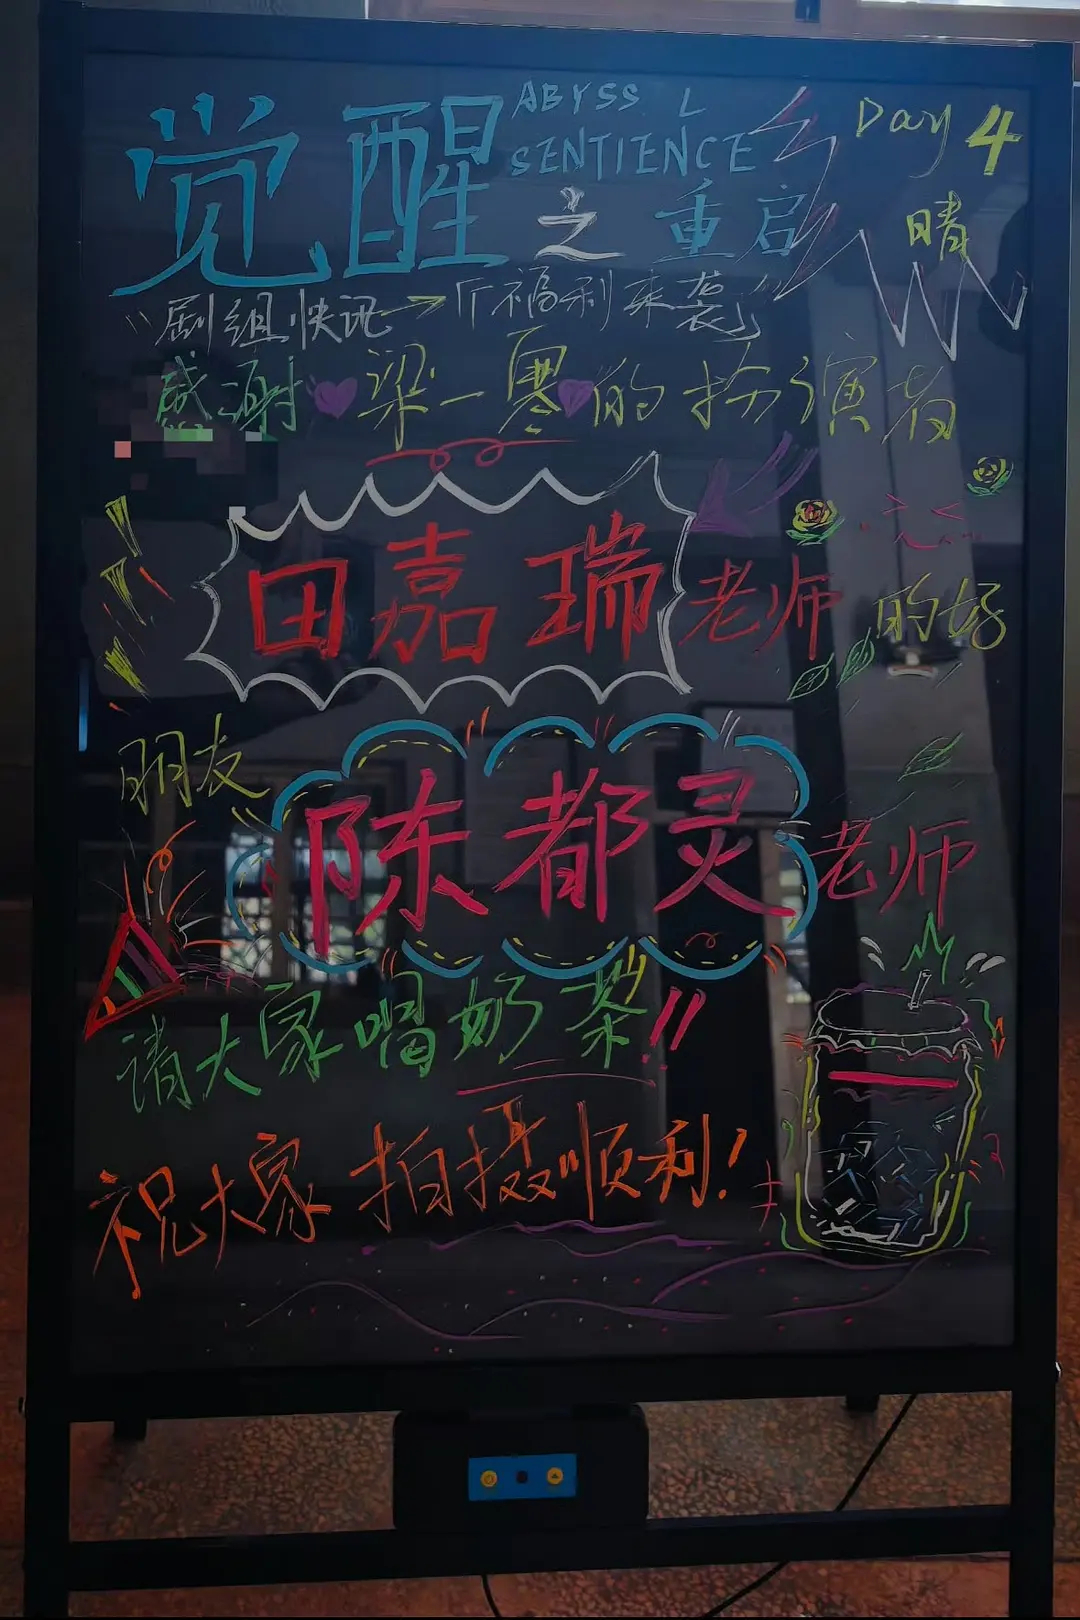 觉醒 ABYSS L
SENTIENCE
之重启
Day 4
晴
"剧组快讯→「福利来袭」"
感谢 梁一寒 的扮演者
田嘉瑞 老师 的好
朋友
陈都灵 老师
请大家喝奶茶!!
祝大家 拍摄顺利!